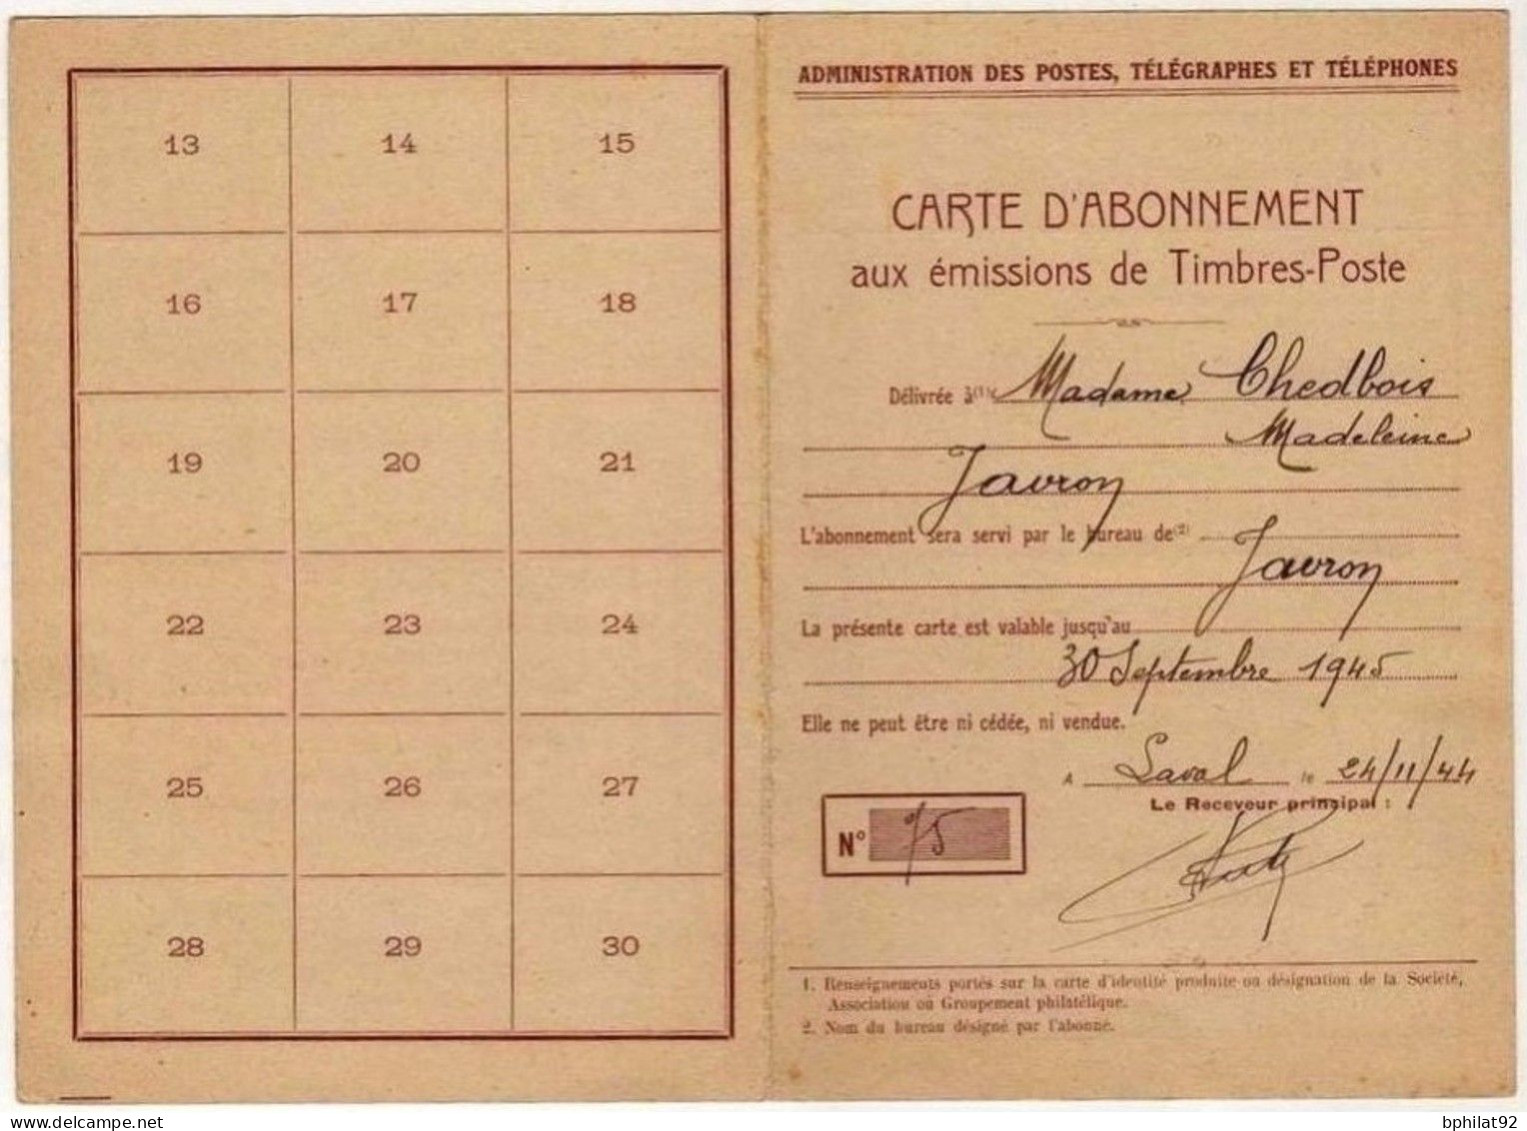 13 14 15
16 17 18
19 20 21
22 23 24
25 26 27
28 29 30
ADMINISTRATION DES POSTES, TÉLÉGRAPHES ET TÉLÉPHONES
CARTE D'ABONNEMENT
aux émissions de Timbres-Poste
Délivrée à (1) Madame Chedbois
Madeleine
Javron
L'abonnement sera servi par le bureau de (2)
Javron
La présente carte est valable jusqu'au
30 Septembre 1945
Elle ne peut être ni cédée, ni vendue.
A Laval le 24/11/44
Le Receveur principal :
N° 75
1. Renseignements portés sur la carte d'identité produite ou désignation de la Société,
Association ou Groupement philatélique.
2. Nom du bureau désigné par l'abonné.
delcampe.net
bphilat92